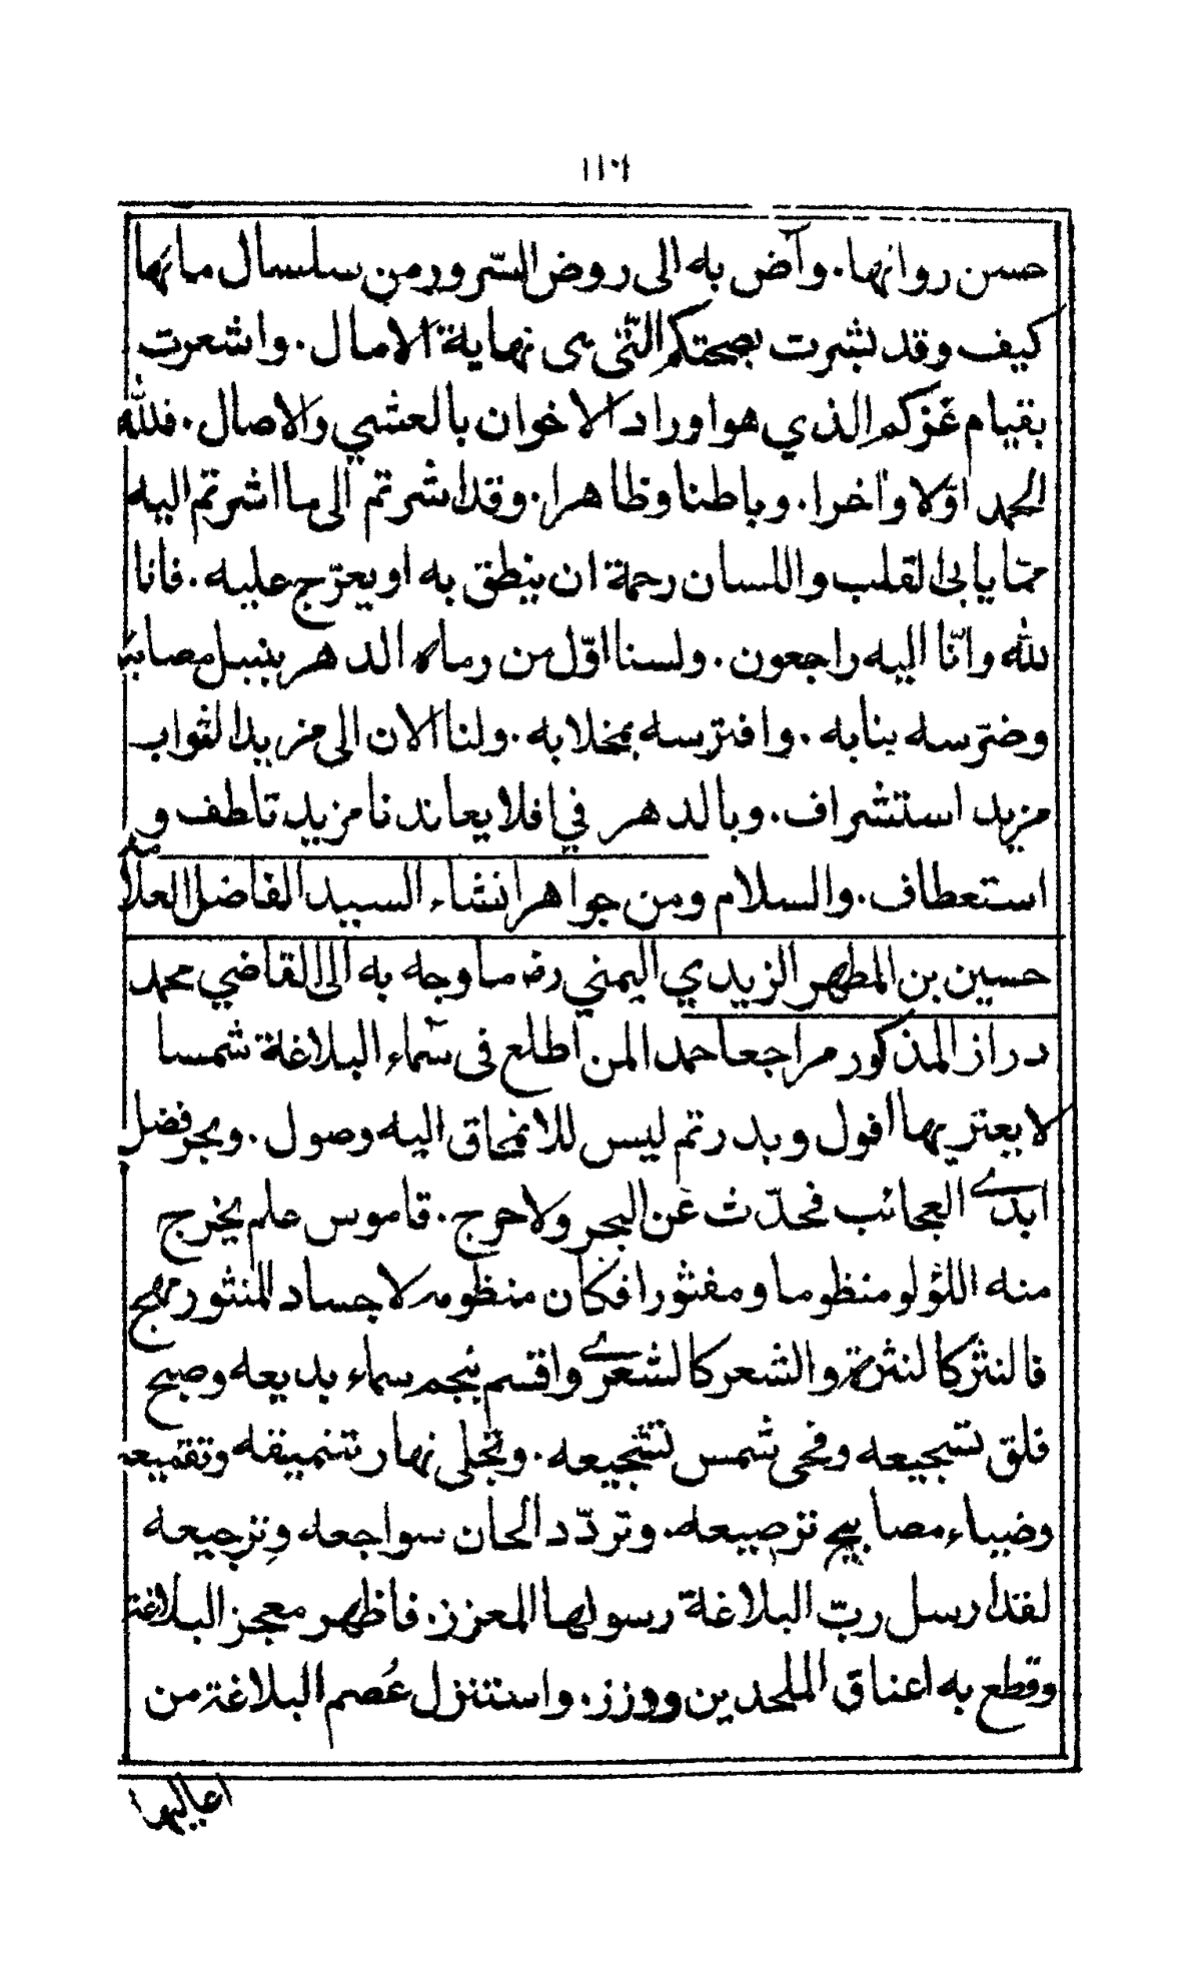 حسن روائها. وآض به الى روض السّرور من سلسال مائها
كيف وقد بشرت بصحتكم التّى هى نهاية الامال. واشعرت
بقيام عزكم الذي هو اوراد الاخوان بالعشي والاصال. فلله
الحمد اوّلا واخرا. وباطنا وظاهرا. وقد اشرتم الى ما اشرتم اليه
ممّا يابى القلب واللسان رحمة ان ينطق به او يعرّج عليه. فانا
لله وانّا اليه راجعون. ولسنا اوّل من رماه الدهر بنبل مصائبه
وضرّسه بنابه. وافترسه بمخلابه. ولنا الان الى مزيد الثواب
مزيد استشراف. وبالدهر في افلا يعاندنا مزيد تاطف و
استعطاف. والسلام ومن جواهر انشاء السيد الفاضل العلامة
حسين بن المطهر الزيدي اليمني رضه ما وجه به الى القاضي محمد
دراز المذكور مراجعا حمد المن اطلع فى سمآء البلاغة شمسا
لا يعتريها افول وبدر تم ليس للانمحاق اليه وصول. وبحر فضل
ابدى العجائب فحدّث عن البحر ولا حرج. قاموس علم يخرج
منه اللؤلو منظوما ومنثورا فكان منظومه لاجساد المنثور مهج
فالنثر كالنثرة والشعر كالشعرى واقسم بنجم سماء بديعه وصبح
فلق تسجيعه وضحى شمس تشجيعه. وتجلى نهار تنميقه وتقميعه
وضياء مصابيح ترصيعه. وتردّد الحان سواجعه وترجيعه
لقد ارسل ربّ البلاغة رسولها المعزز. فاظهر معجز البلاغة
وقطع به اعناق الملحدين وورزز. واستنزل عُصم البلاغة من
اعاليها